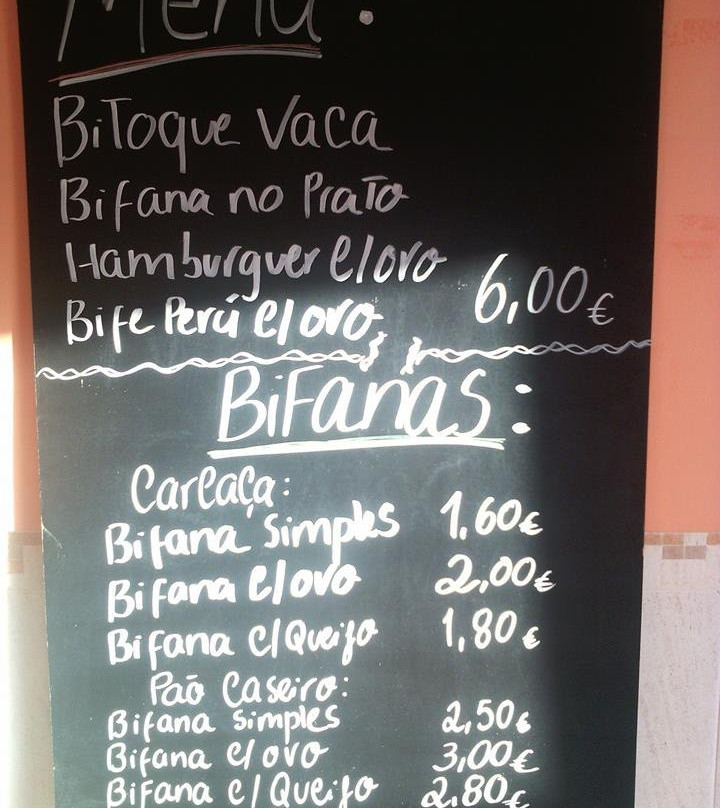 Menu:
BiToque Vaca
Bifana no Prato
Hamburguer c/ovo
Bife Perú c/ovo 6,00€
BiFanas:
Carcaça:
Bifana Simples 1,60€
Bifana c/ovo 2,00€
Bifana c/Queijo 1,80€
Pão Caseiro:
Bifana Simples 2,50€
Bifana c/ovo 3,00€
Bifana c/Queijo 2,80€